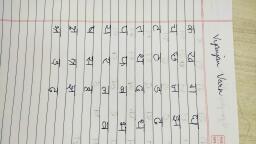 Vyanjan Varn
क ख ग घ
च छ ज झ
ट ठ ड ढ
त थ द ध
प फ ब भ
य र ल व
ष स ह
क्ष त्र ज्ञ
श्र ड़ ढ़